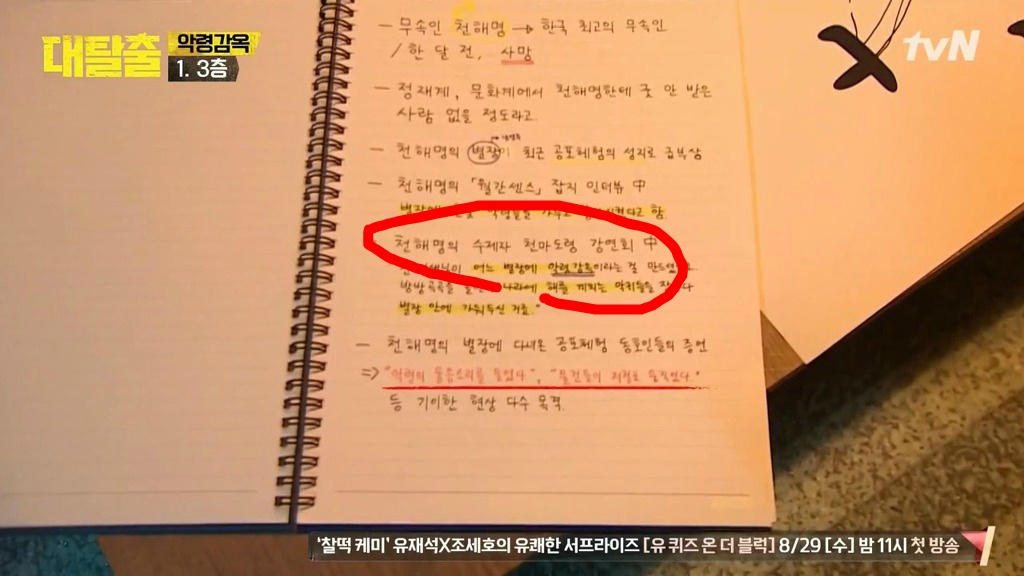 대탈출
악령감옥
1. 3층
tvN
- 무속인 천해명 → 한국 최고의 무속인
/ 한 달 전, 사망
- 정재계, 문화계에서 천해명한테 굿 안 받은
사람 없을 정도라고
- 천해명의 별장이 최근 공포체험의 성지로 급부상
- 천해명의 「월간센스」 잡지 인터뷰 中
별장에
함
천해명의 수제자 천마도령 강연회 中
어느 별장에 악령감옥이라는 걸
방방곡곡을 나라에 해를 끼치는 악귀들을
별장 안에 가둬두신 거죠."
- 천해명의 별장에 다녀온 공포체험 동호인들의 증언
=> "악령의 울음소리를 들었다", "물건들이 저절로 움직였다"
등 기이한 현상 다수 목격.
'찰떡 케미' 유재석X조세호의 유쾌한 서프라이즈 [유 퀴즈 온 더 블럭] 8/29 [수] 밤 11시 첫 방송